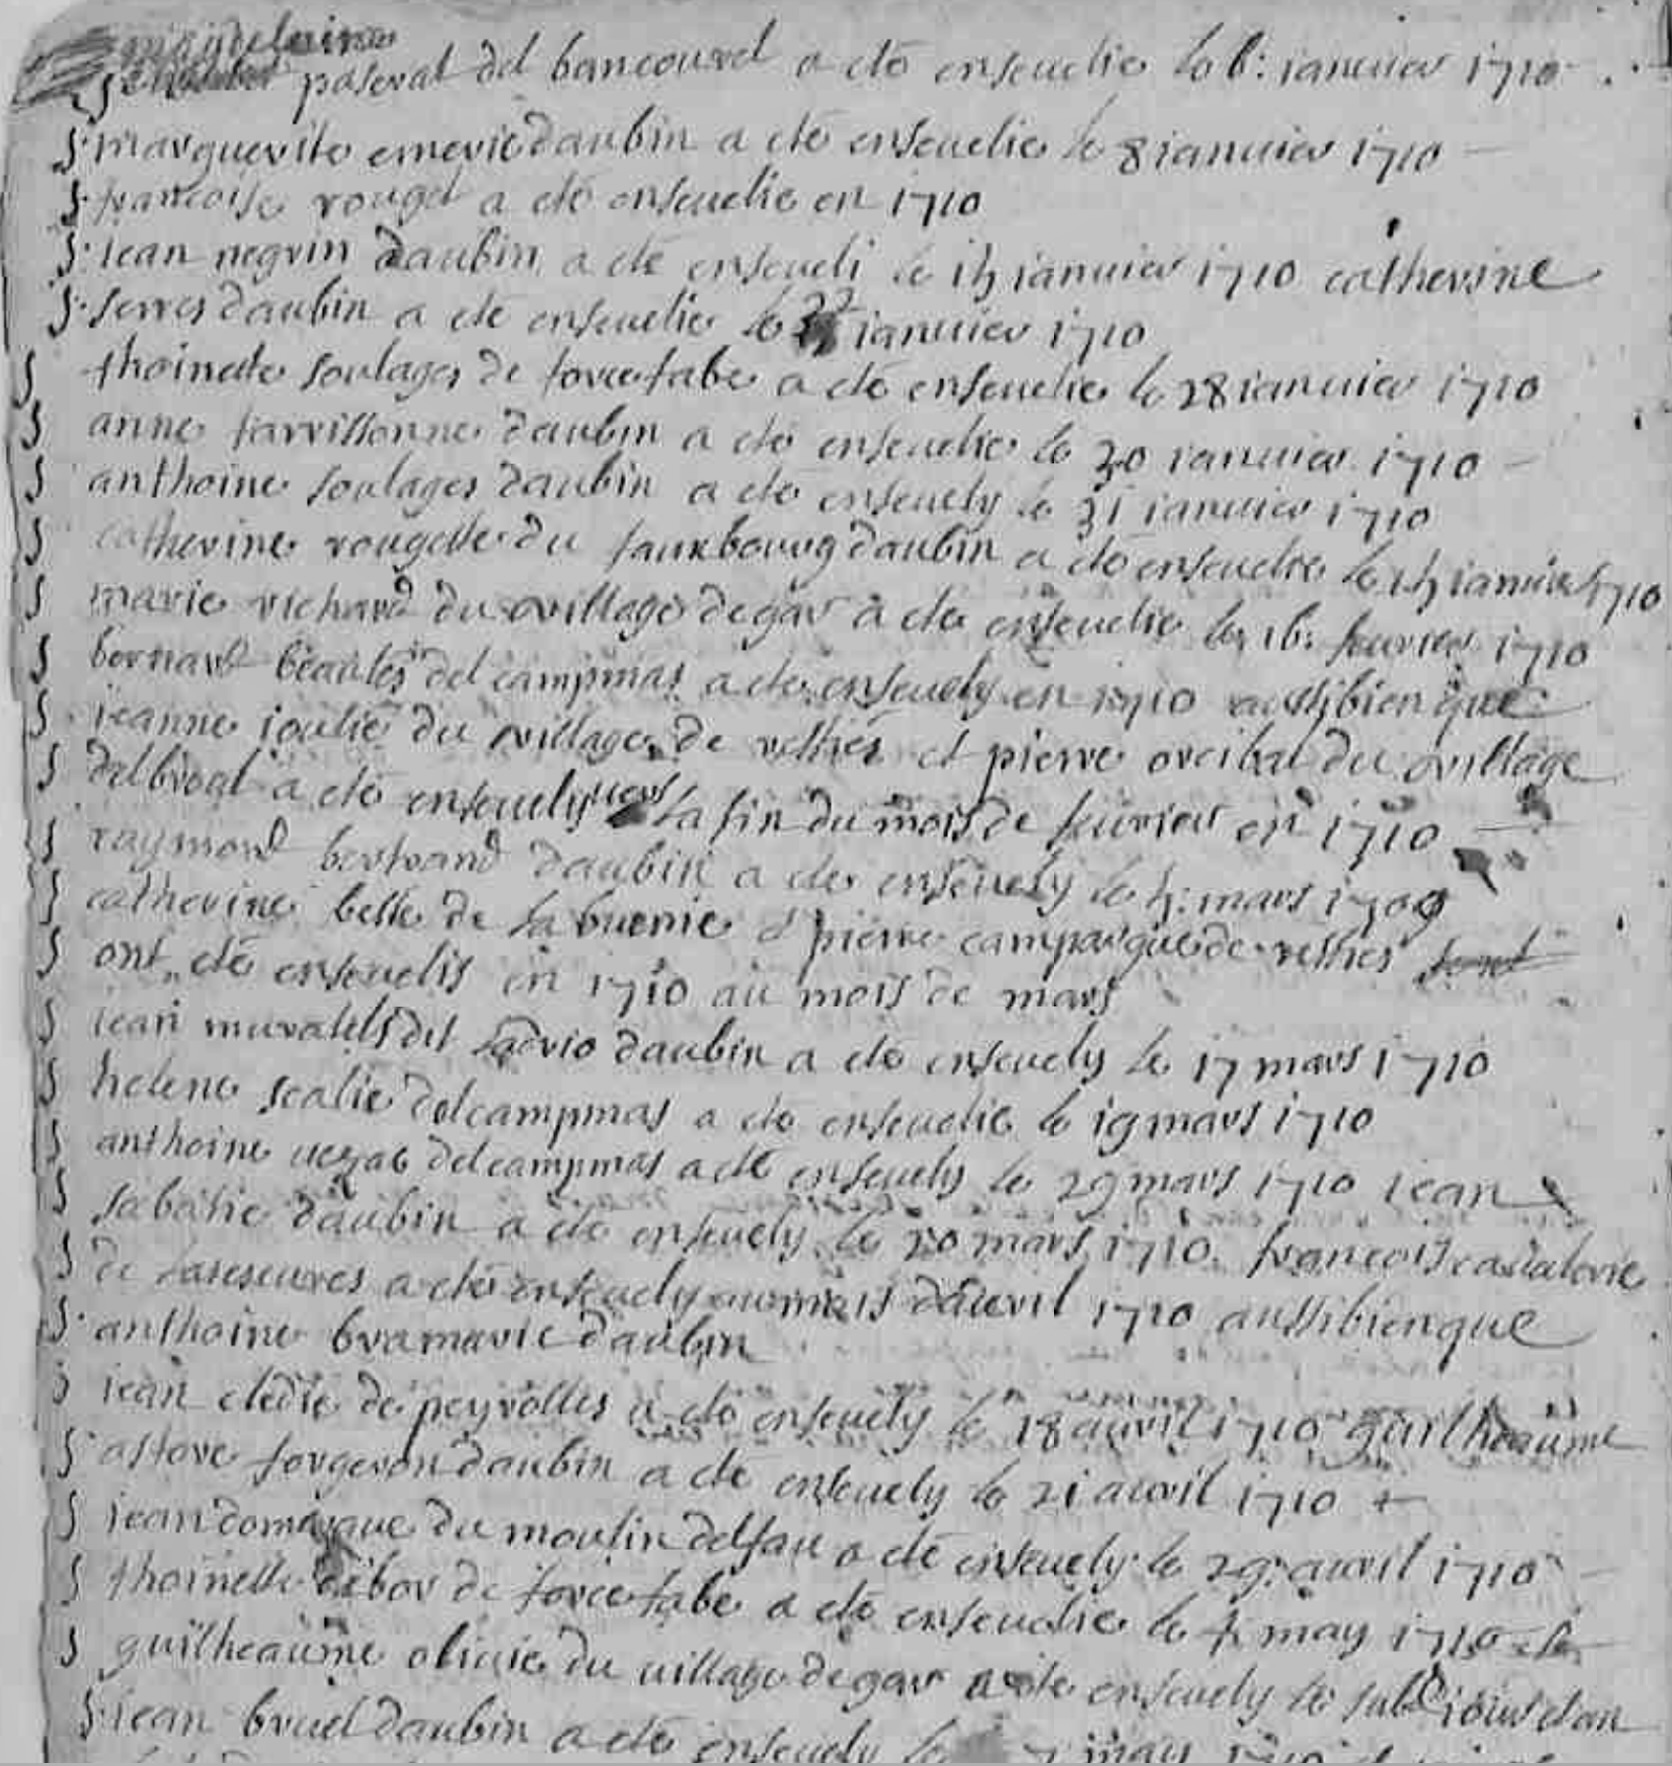 magdelaine
pascual del bancourel a eté enseuelie le 6: ianuier 1710
S. marguerite emerie daubin a eté enseuelie le 8 ianuier 1710
S. francoise rouget a eté enseuelie en 1710
S. iean negrin daubin a eté enseueli le 15 ianuier 1710 catherine
S. serres daubin a eté enseuelie le 27 ianuier 1710
S thoinete soulages de torcefabe a eté enseuelie le 28 ianuier 1710
S anne farrissonne daubin a eté enseuelie le 30 ianuier 1710
S anthoine soulages daubin a eté enseuely le 31 ianuier 1710
S catherine rougette du fauxbourg daubin a eté enseuelie le 15 ianuier 1710
S marie richard du village degar a eté enseuelie le 16: feurier 1710
S bernard del campmas a eté enseuely en 1710 aussibienque
S ieanne ioulié du village de vethiés et pierre orcibal du village
S delbroal a eté enseuely uers la fin du mois de feurier en 1710
S raymond bertrand daubin a eté enseuely le 5: mars 1709
S catherine belle de la buenie et pierre campargue de vethiés
S ont eté enseuelis en 1710 au mois de mars
S iean muratels dit ladrio daubin a eté enseuely le 17 mars 1710
S helene scalié delcampmas a eté enseuelie le 19 mars 1710
S anthoine uezac delcampmas a eté enseuely le 29 mars 1710 iean
S sabatié daubin a eté enseuely le 30 mars 1710. francois cadalerie
S de lasescures a eté enseuely au mois dauril 1710 aussibienque
S. anthoine bramarie daubin
S iean cledie de peyrolles a eté enseuely le 18 auril 1710 guilheaume
S. astore forgeron daubin a eté enseuely le 21 auril 1710 +
S iean domergue du moulin delfau a eté enseuely le 29: auril 1710
S thoinette debor de torcefabe a eté enseuelie le 5 may 1710
S guilheaume oliuié du uillage degar a eté enseuely le susd iour et an
S. iean bruel daubin a eté enseuely le may 1710